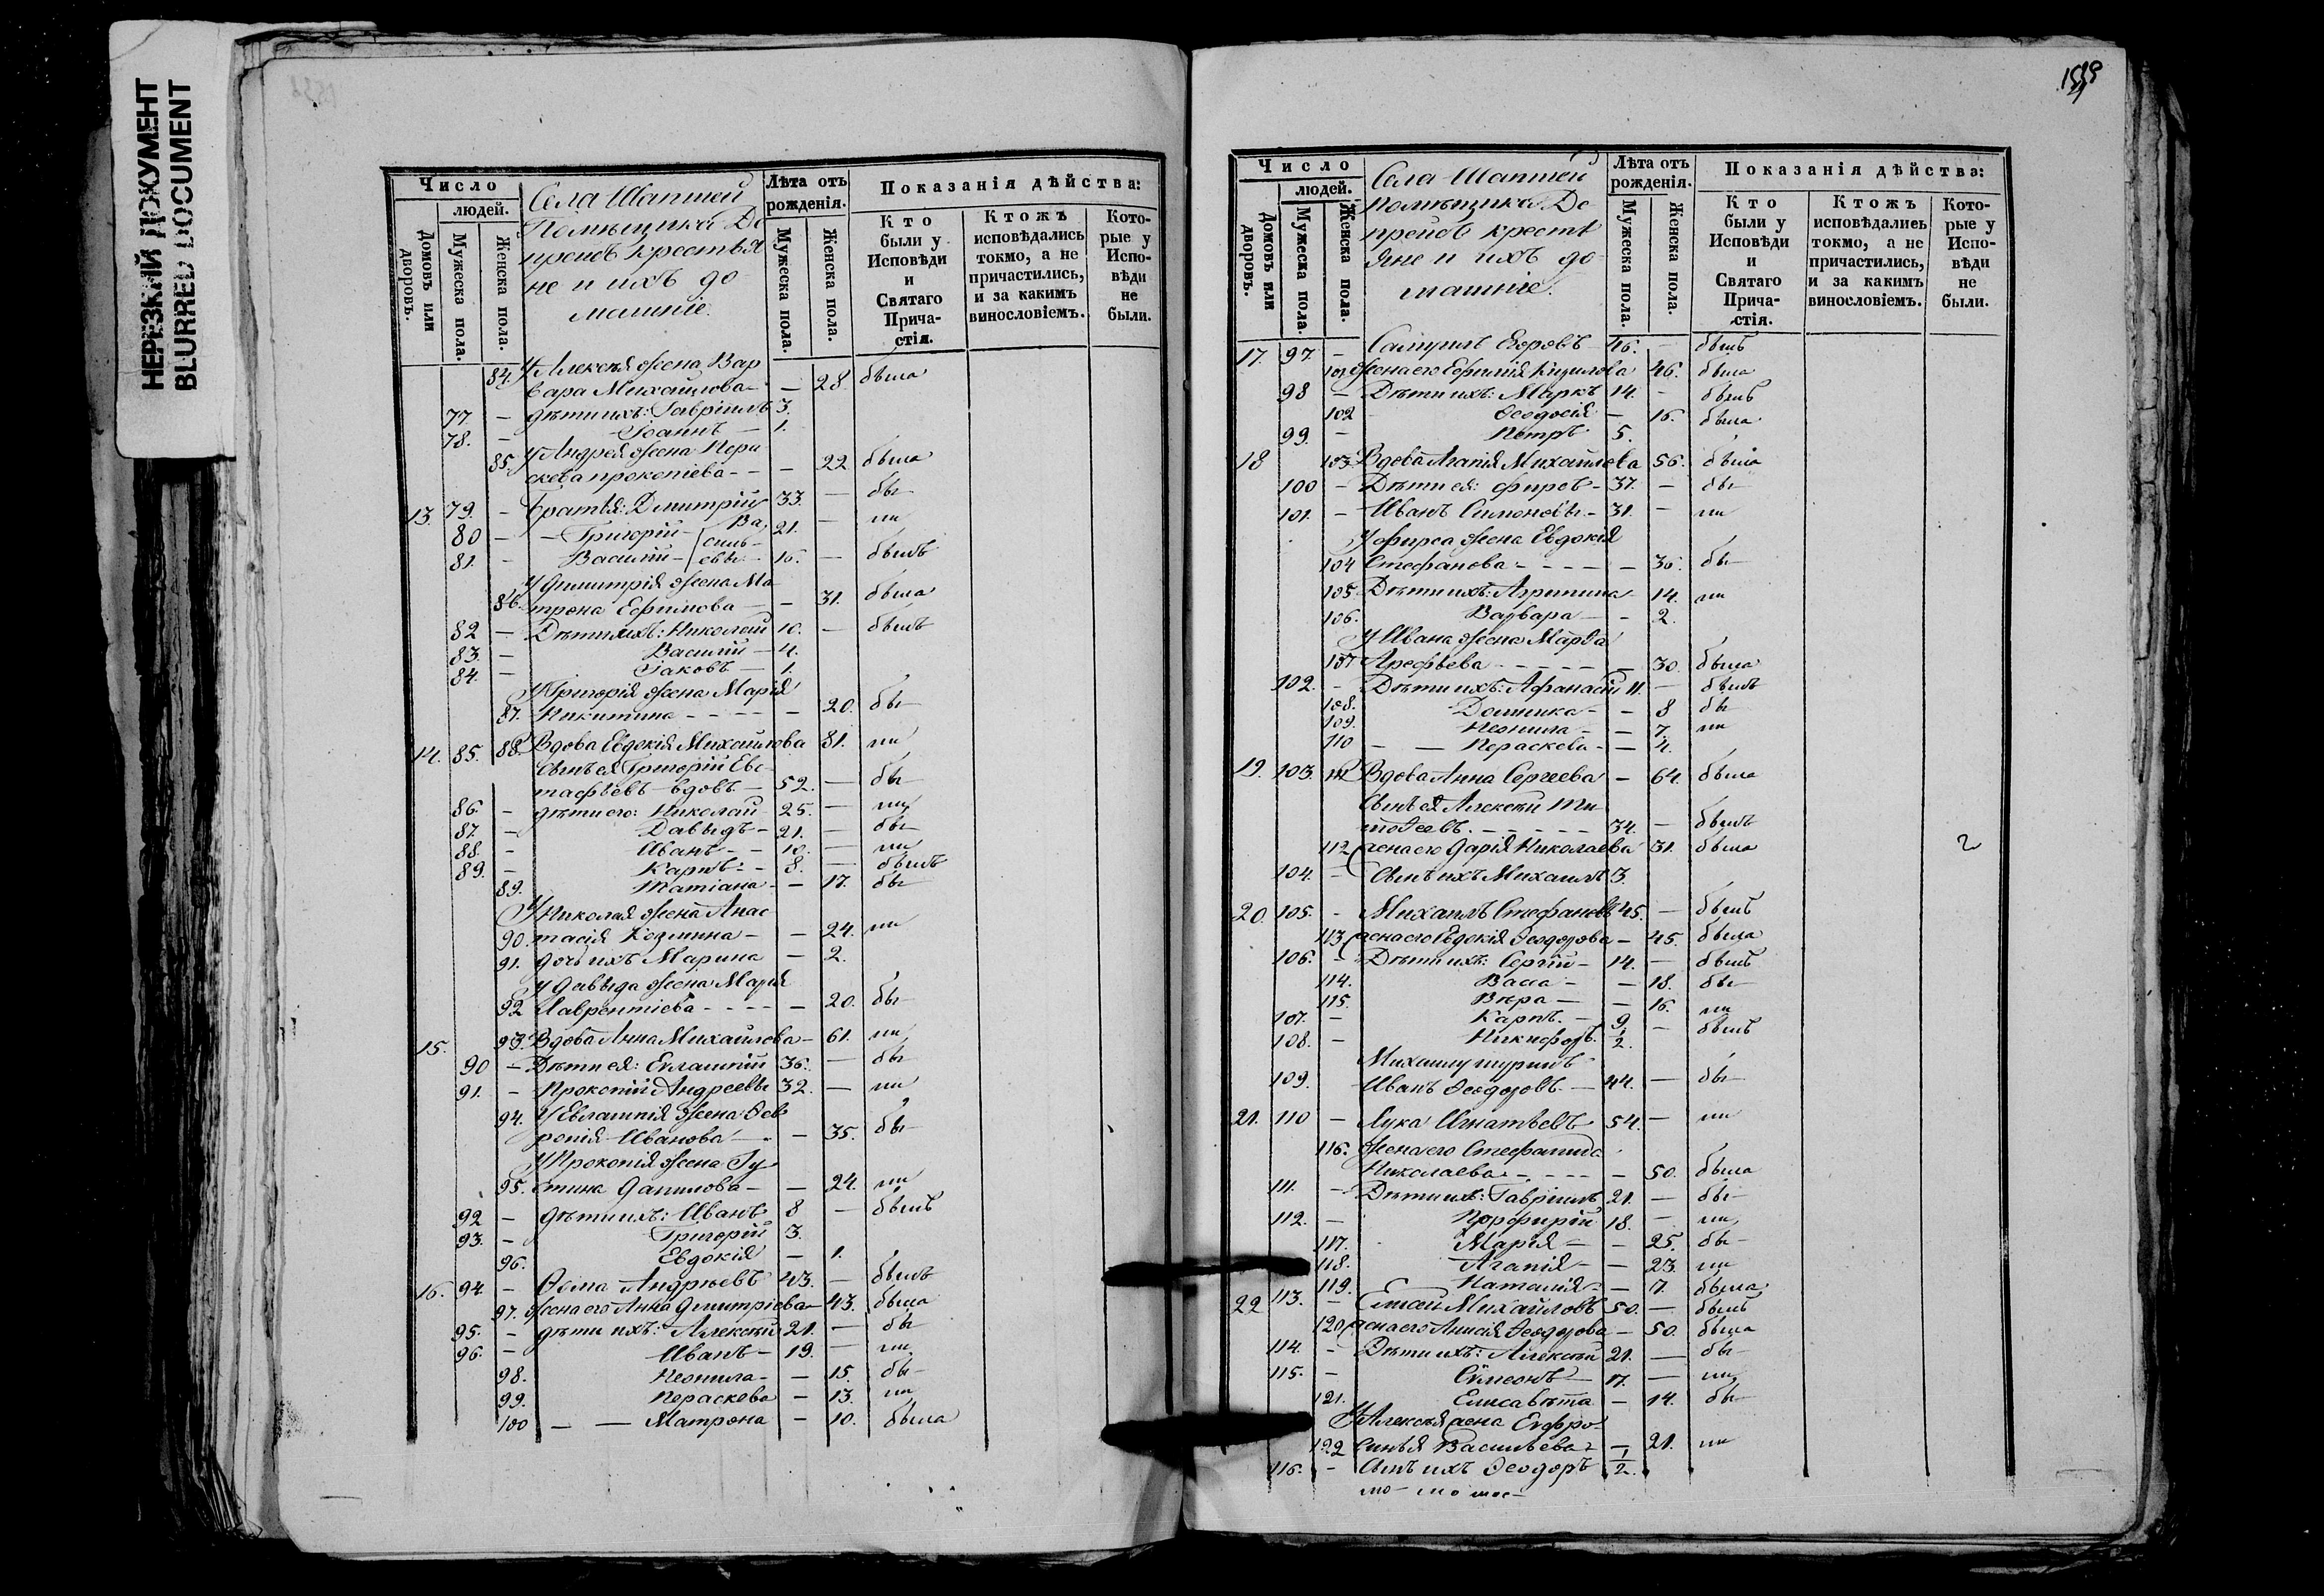 НЕРЕЗКИЙ ДОКУМЕНТ
BLURRED DOCUMENT
Число
людей.
Домовъ или дворовъ.
Мужеска пола.
Женска пола.
Села Шаптей
Помѣщика Де
крестья
не и ихъ до
машніе.
Лѣта отъ рожденія.
Мужеска пола.
Женска пола.
Показанія дѣйства:
Кто были у Исповѣди и Святаго Прича-стія.
Ктожъ исповѣдались токмо, а не причастились, и за какимъ винословіемъ.
Кото-рые у Испо-вѣди не были.
84. У Алексѣя жена Вар
вара Михайлова — 28. была
77. — дѣти ихъ: Гавріилъ 3.
78. — Іоаннъ — 1.
85. У Андрея жена Пара
скева Прокопіева - - — 22 была
13. 79. — Братья: Димитрій 33. — бы
80 — — Григорій — Ва 21. — ли
81. — Василій — сильевы — 16. — былъ
У Димитрія жена Ма
86. трона Ефимова — — 31. была
82 — Дѣти ихъ: Николай 10. — былъ
83. — Василій — 4.
84. — Іаковъ — 1.
У Григорія жена Марія
87. Никитина - - - - — 20. бы
14. 85. 88. Вдова Евдокія Михайлова 81. ли
Сынъ ея Григорій Евс
тафьевъ вдовъ — 52. — бы
86. — дѣти его: Николай 25. — ли
87. — Давыдъ — 21. — бы
88. — Иванъ - - 10. — ли
89. — Карпъ - - 8. — былъ
89. Татіана — — 17. бы
У Николая жена Анас
90. тасія Козмина — — 24. ли
91. дочь ихъ Марина — 2.
У Давыда жена Марія
92 Лаврентіева - - - - — 20. бы
15. 93. Вдова Анна Михайлова — 61. ли
90 — Дѣти ея: Евлампій 36. — бы
91. — Прокопій Андреевы 32. — ли
94. У Евлампія жена Фев
ронія Иванова — — 35. бы
У Прокопія жена Іу
95. стина Данилова — — 24. ли
92 — дѣти ихъ: Иванъ 8 — былъ
93. — Григорій 3.
96. Евдокія — 1.
16. 94. — Ѳома Андреевъ 43. — былъ
97. жена его Анна Дмитріева — 43. была
95. — дѣти ихъ: Алексѣй 21. — бы
96. — Иванъ — 19. — ли
98. Неонила — — 15. бы
99. Параскева — 13. ли
100 — — Матрона — 10. была
Число
людей.
Домовъ или дворовъ.
Мужеска пола.
Женска пола.
Села Шаптей
помѣщика Де
крестья
яне и ихъ до
машніе.
Лѣта отъ рожденія.
Мужеска пола.
Женска пола.
Показанія дѣйства:
Кто были у Исповѣди и Святаго Прича-стія.
Ктожъ исповѣдались токмо, а не причастились, и за какимъ винословіемъ.
Кото-рые у Испо-вѣди не были.
17. 97. — Егоровъ 46. — былъ
101 жена его 46. была
98 — Дѣти ихъ: Маркъ 14. — былъ
102 Ѳеодосія — 16. была
99. — Петръ 5.
18 103. Вдова Агапія Михайлова 56. была
100 — Дѣти ея: Фирсъ — 37. — бы
101. — Иванъ Симоновы — 31. — ли
У Фирса жена Евдокія
104 Стефанова - - - - — 36. бы
105. Дѣти ихъ: Агрипина 14. ли
106. Варвара — — 2.
У Ивана жена Марѳа
107 Арефьева - - - - - — 30. была
102. — Дѣти ихъ: Афанасій 11. — былъ
108. Домника — — 8 бы
109. Неонила — — 7. ли
110 — — Параскева — — 4.
19. 103. 111 Вдова Анна Сергеева — 64. была
Сынъ ея Алексѣй Ти
моѳеевъ. - - - - - 34. — былъ
112 жена его Дарія Николаева 31. была
2
104. — Сынъ ихъ Михаилъ 3.
20. 105. — Михаилъ Стефановъ 45. — былъ
113. жена его Евдокія Ѳеодорова — 45. была
106. — Дѣти ихъ: Сергій — 14. — былъ
114. Васса — — 18. бы
115. Вѣра — — 16. ли
107. — Карпъ. — 9. — былъ
108. — Никифоръ. 1/2.
Михаилу шуринъ
109. Иванъ Ѳеодоровъ. — 44. — бы
21. 110 — Лука Игнатьевъ 54. — ли
116. жена его Стефанида
Николаева - - - - — 50. была
111. — Дѣти ихъ: Гавріилъ 21. — бы
112. — Порфирій 18. — ли
117. Марія — — 25. бы
118. Агапія — — 23. ли
119. Наталія — — 17. была
22 113. — Елисей Михайловъ 50. — былъ
120 жена его Анисія Ѳеодорова — 50. была
114. — Дѣти ихъ: Алексѣй 21. — бы
115. — Сѵмеонъ — 17. — ли
121. Елисавѣта — 14. бы
У Алексѣя жена Евфро
122 синья Васильева — 21. ли
116. — Сынъ ихъ Ѳеодоръ 1/2.